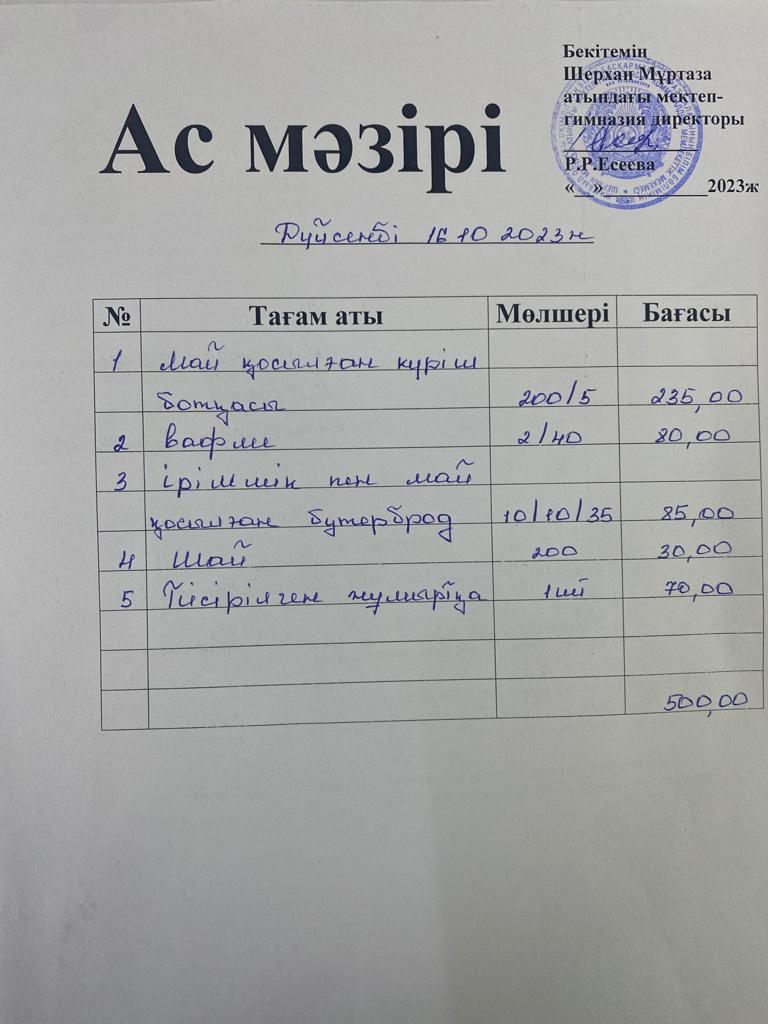 Бекітемін
Шерхан Мұртаза
атындағы мектеп-
гимназия директоры
Р.Р.Есеева
«__»____________2023ж
Ас мәзірі
Дүйсенбі 16 10 2023ж
№ Тағам аты Мөлшері Бағасы
1 Май қосылған күріш
ботқасы 200/5 235,00
2 вафли 2/40 80,00
3 ірімшік пен май
қосылған бутерброд 10/10/35 85,00
4 Шай 200 30,00
5 Пісірілген жұмыртқа 1шт 70,00
500,00